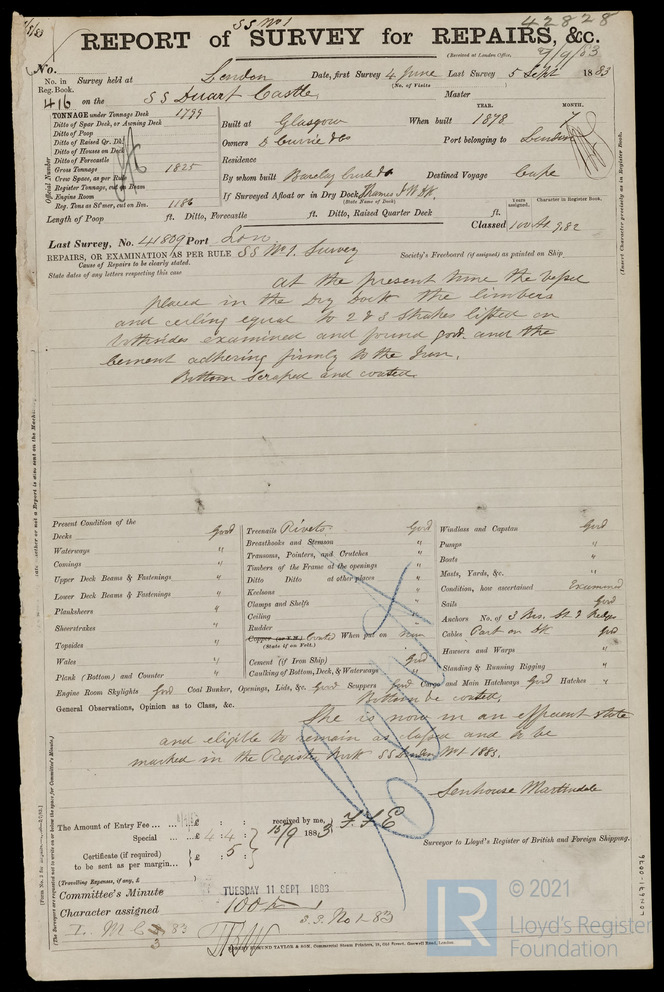 SS No 1
42828
REPORT of SURVEY for REPAIRS, &c.
(Received at London Office,
7/9/83
No.
No. in Reg. Book. Survey held at London Date, first Survey 4 June Last Survey 5 Sept 1883
(No. of Visits
416 on the SS Duart Castle Master
TONNAGE under Tonnage Deck 1799
Ditto of Spar Deck, or Awning Deck
Ditto of Poop
Ditto of Raised Qr. Dk.
Ditto of Houses on Deck
Ditto of Forecastle
Gross Tonnage 1825
Crew Space, as per Rule
Register Tonnage, cut on Beam
Engine Room
Reg. Tons as St'mer, cut on Bm. 1186
Official Number
YEAR. MONTH.
Built at Glasgow When built 1878 7
Owners D Currie & Co Port belonging to London
Residence
By whom built Barclay Curle & Co Destined Voyage Cape
If Surveyed Afloat or in Dry Dock Thames
(State Name of Dock)
Years assigned. Character in Register Book.
Length of Poop ft. Ditto, Forecastle ft. Ditto, Raised Quarter Deck ft.
Classed 100 A1 9.82
(Insert Character precisely as in Register Book.
Last Survey, No. 41809 Port Lon
REPAIRS, OR EXAMINATION AS PER RULE SS No 1. Survey Society's Freeboard (if assigned) as printed on Ship
Cause of Repairs to be clearly stated.
State dates of any letters respecting this case
At the present time the vessel
placed in the Dry Dock the limbers
and ceiling equal to 2 & 3 Strakes lifted on
bothsides examined and found good. and the
Cement adhering firmly to the Iron.
Bottom Scraped and coated.
Present Condition of the
Decks Good
Waterways "
Comings "
Upper Deck Beams & Fastenings "
Lower Deck Beams & Fastenings "
Planksheers "
Sheerstrakes "
Topsides "
Wales "
Plank (Bottom) and Counter "
Treenails Rivets Good
Breasthooks and Stemson "
Transoms, Pointers, and Crutches "
Timbers of the Frame at the openings "
Ditto Ditto at other places "
Keelsons "
Clamps and Shelfs "
Ceiling "
Rudder "
Copper (or Y.M.) Coated When put on now
(State if on Felt.)
Cement (if Iron Ship) Good
Caulking of Bottom, Deck, & Waterways "
Windlass and Capstan Good
Pumps "
Boats "
Masts, Yards, &c. "
Condition, how ascertained Examined
Sails Good
Anchors No. of 3 Brs. St. 2 Kedges
Cables Part on Dk. good
Hawsers and Warps "
Standing & Running Rigging "
Engine Room Skylights Good Coal Bunker, Openings, Lids, &c. Good Scuppers Good Cargo and Main Hatchways Good Hatches "
General Observations, Opinion as to Class, &c.
Bottom be coated.
She is now in an efficient state
and eligible to remain as classed and to be
marked in the Register Book SS London No 1. 1883.
Senhouse Martindale
The Amount of Entry Fee £ : : received by me,
Special £ 4 : 4 : 15/9 1883
Certificate (if required) to be sent as per margin £ : 5 :
(Travelling Expenses, if any, £
Surveyor to Lloyd's Register of British and Foreign Shipping.
Committee's Minute TUESDAY 11 SEPT 1883
Character assigned 100 A 1
S.S. No 1-83
ROBERT EDMUND TAYLOR & SON, Commercial Steam Printers, 19, Old Street, Goswell Road, London.
LR
© 2021
Lloyd's Register
Foundation